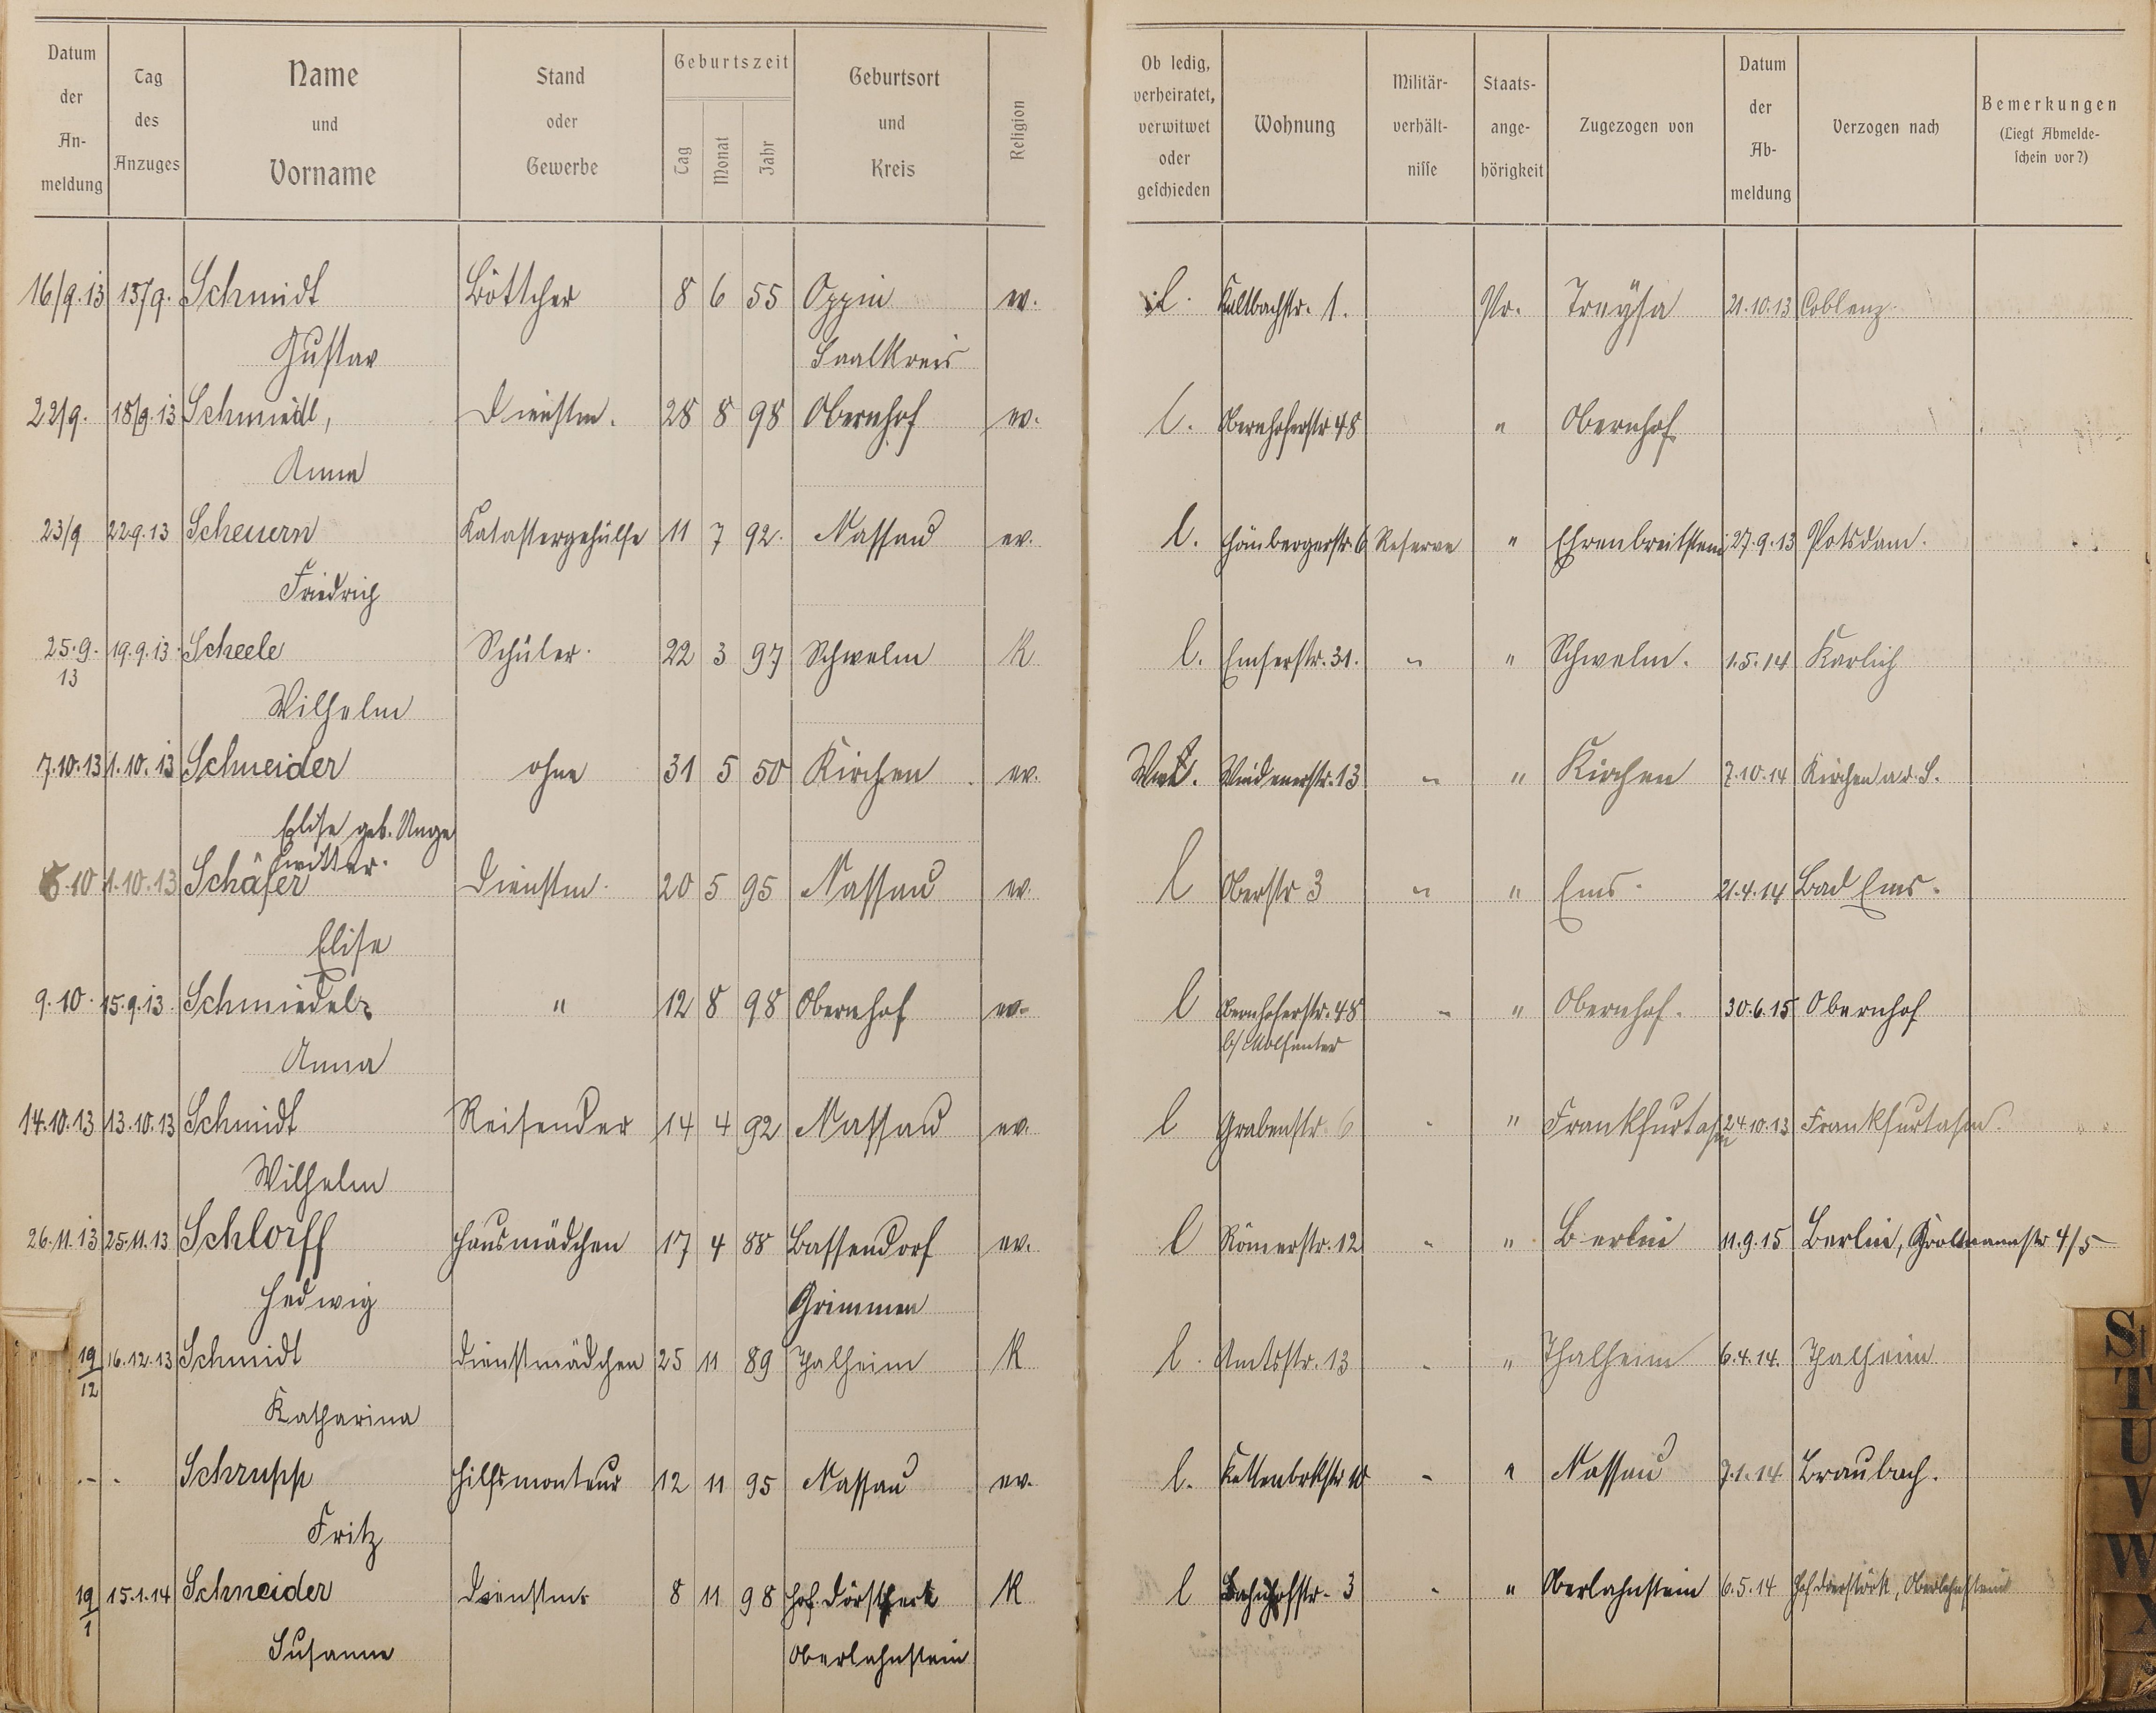 Datum der Anmeldung | Tag des Anzuges | Name und Vorname | Stand oder Gewerbe | Geburtszeit Tag Monat Jahr | Geburtsort und Kreis | Religion | Ob ledig, verheiratet, verwitwet oder geschieden | Wohnung | Militärverhältnisse | Staatsangehörigkeit | Zugezogen von | Datum der Abmeldung | Verzogen nach | Bemerkungen (Liegt Abmeldeschein vor?)
16/9.13 15/9. Schmidt Böttcher 8 6 55 Oppin ev. l. Kaltbachstr. 1. Pr. Treysa 21.10.13 Coblenz.
Gustav Saalkreis
22/9. 18/9.13 Schmiedl, Dienstm. 28 8 98 Obernhof ev. l. Obernhoferstr 48 " Obernhof
Anna
23/9 22.9.13 Scheuern Katastergehülfe 11 7 92. Nassau ev. l. Hömbergerstr. 6 Reserve " Ehrenbreitstein 27.9.13 Potsdam.
Friedrich
25.9.13 19.9.13. Scheele Schüler. 22 3 97 Schwelm K l. Emserstr. 31. " " Schwelm. 1.5.14 Karlich
Wilhelm
7.10.13 1.10.13 Schneider ohne 31 5 50 Kirchen ev. Wwe. Windenerstr. 13 " " Kirchen 7.10.14 Kirchen a.d.S.
Elise geb. Unge
witter.
6.10 1.10.13 Schäfer Dienstm. 20 5 95 Nassau ev. l Oberstr 3 " " Ems. 21.4.14 Bad Ems.
Elise
9.10. 15.9.13. Schmiedel " 12 8 98 Obernhof ev. l Obernhoferstr. 48 " " Obernhof. 30.6.15 Obernhof
b/
Anna
14.10.13 13.10.13 Schmidt Reisender 14 4 92 Nassau ev. l Grabenstr. 6 " " Frankfurt a/m 24.10.13 Frankfurt a/m.
Wilhelm
26.11.13 25.11.13 Schlorff Hausmädchen 17 4 88 Bassendorf ev. l Römerstr. 12 " " Berlin 11.9.15 Berlin, Grolmannstr 4/5
Hedwig Grimmen
19/12 16.12.13 Schmidt Dienstmädchen 25 11 89 Thalheim K l. Amtsstr. 13 " " Thalheim 6.4.14. Thalheim
Katharina
- - Schrupp Hilfsmonteur 12 11 95 Nassau ev. l. " " Nassau 7.1.14 Braubach.
Fritz
19/1 15.1.14 Schneider Dienstm. 8 11 98 Hof. K l Bahnhofstr. 3 " " Oberlahnstein 6.5.14 Hof Oberlahnstein
Susanne Oberlahnstein
St
T
U
V
W
X